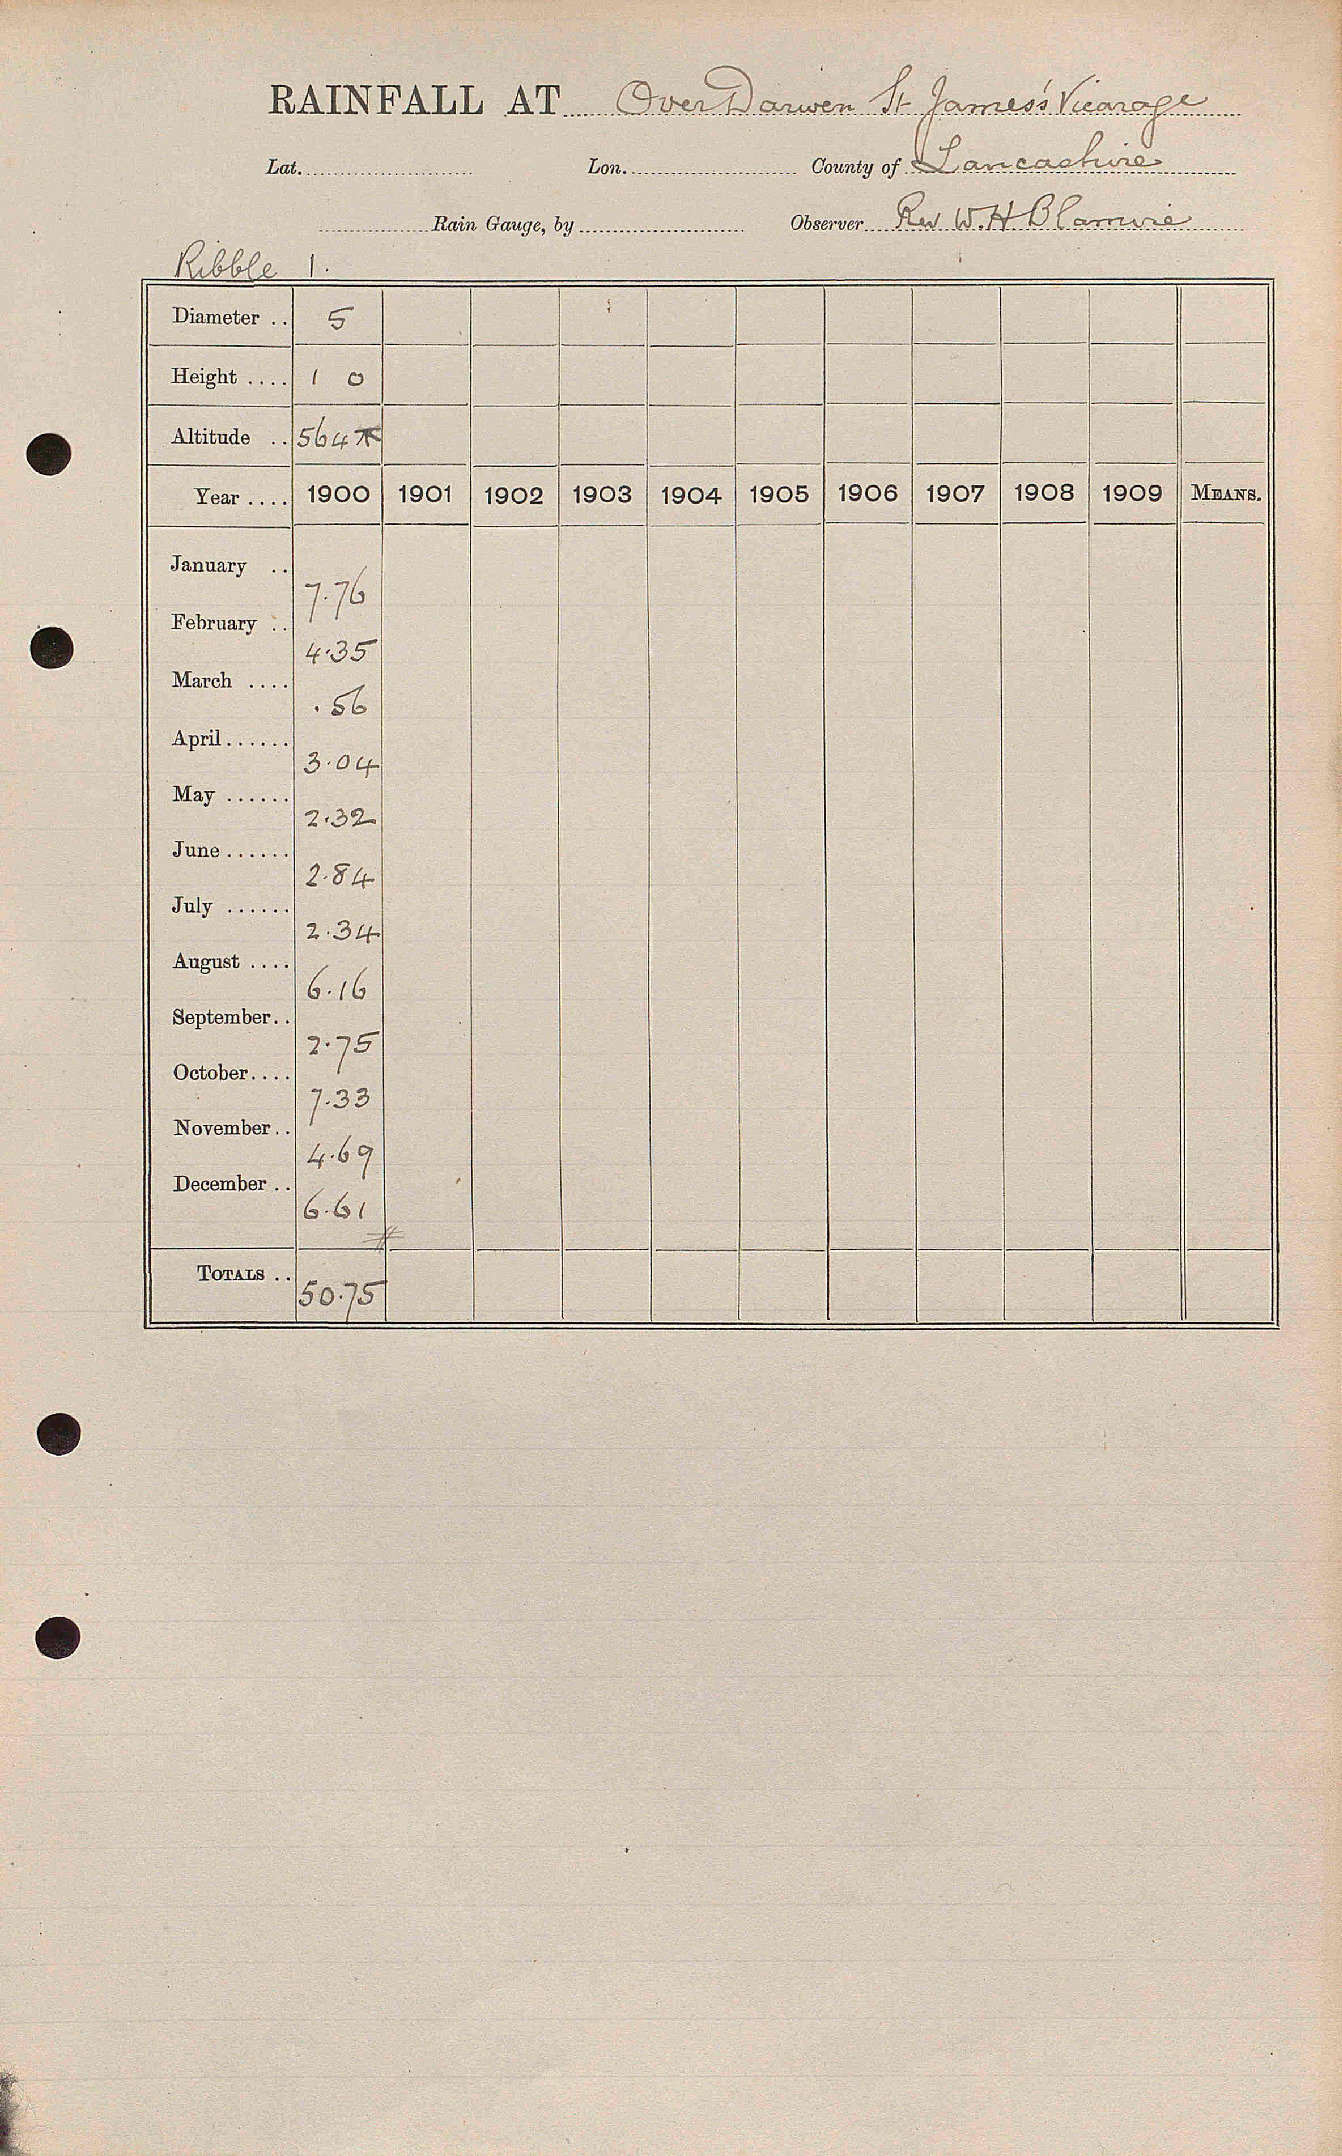 RAINFALL AT Over Darwen St James's Vicarage
Lat. Lon. County of Lancashire
Rain Gauge, by Observer Rev W. H
Ribble 1.
Diameter .. 5
Height .... 1 0
Altitude .. 564
Year .... 1900 1901 1902 1903 1904 1905 1906 1907 1908 1909 MEANS.
January .. 7.76
February .. 4.35
March .... .56
April...... 3.04
May ...... 2.32
June ...... 2.84
July ...... 2.34
August .... 6.16
September.. 2.75
October.... 7.33
November.. 4.69
December .. 6.61
#
TOTALS .. 50.75